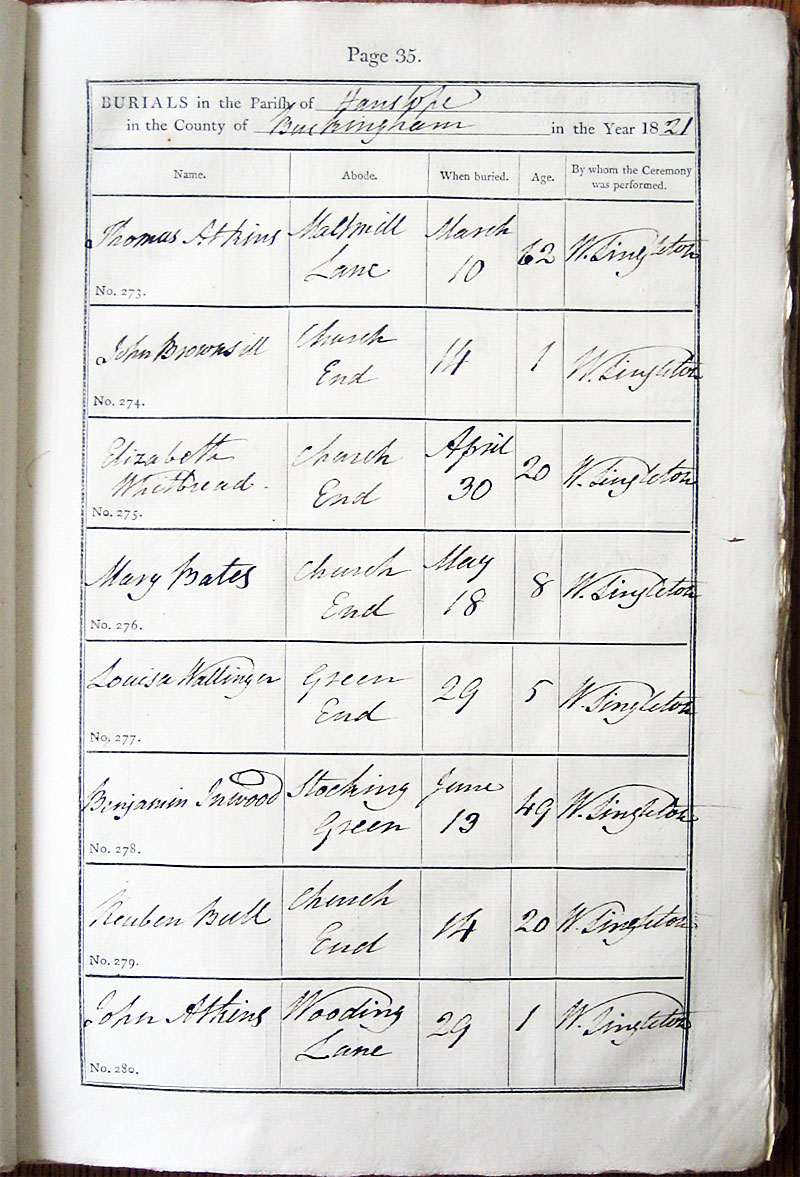 Page 35.
BURIALS in the Parish of Hanslope
in the County of Buckingham in the Year 1821
Name. Abode. When buried. Age. By whom the Ceremony was performed.
Thomas Atkins Maltmill Lane March 10 62 W. Singleton
No. 273.
John Brownsill Church End 14 1 W. Singleton
No. 274.
Elizabeth Whitbread Church End April 30 20 W. Singleton
No. 275.
Mary Bates Church End May 18 8 W. Singleton
No. 276.
Louisa Wallinger Green End 29 5 W. Singleton
No. 277.
Benjamin Inwood Stocking Green June 13 49 W. Singleton
No. 278.
Reuben Bull Church End 14 20 W. Singleton
No. 279.
John Atkins Wooding Lane 29 1 W. Singleton
No. 280.